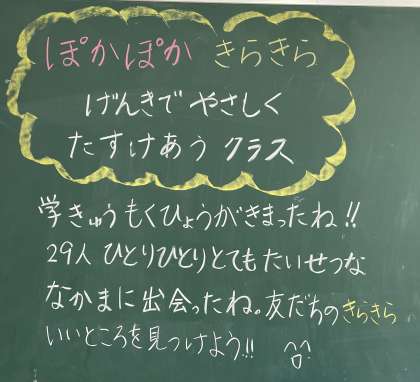 ぽかぽか きらきら
げんきで やさしく
たすけあう クラス
学きゅうもくひょうがきまったね!!
29人 ひとりひとりとてもたいせつな
なかまに出会ったね。友だちのきらきら
いいところを見つけよう!!